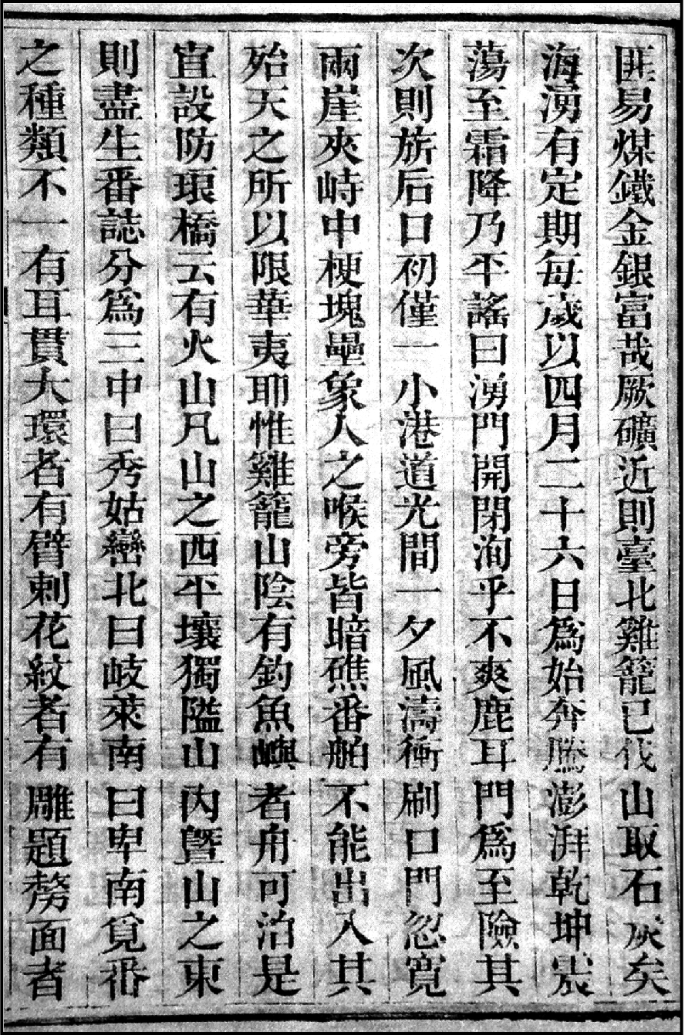 匪易煤鐵金銀富哉厥礦近則臺北雞籠已伐山取石灰矣
海湧有定期每歲以四月二十六日為始奔騰澎湃乾坤震
蕩至霜降乃平謠曰湧門開閉洵乎不爽鹿耳門爲至險其
次則旂后口初僅一小港道光間一夕風濤衝刷口門忽寬
兩崖夾峙中梗塊壘象人之喉旁皆暗礁番舶不能出入其
殆天之所以限華夷耶惟雞籠山陰有釣魚嶼者舟可泊是
宜設防琅橋云有火山凡山之西平壤獨隘山內曁山之東
則盡生番誌分爲三中曰秀姑巒北曰岐萊南曰卑南覓番
之種類不一有耳貫大環者有臂刺花紋者有雕題剺面者